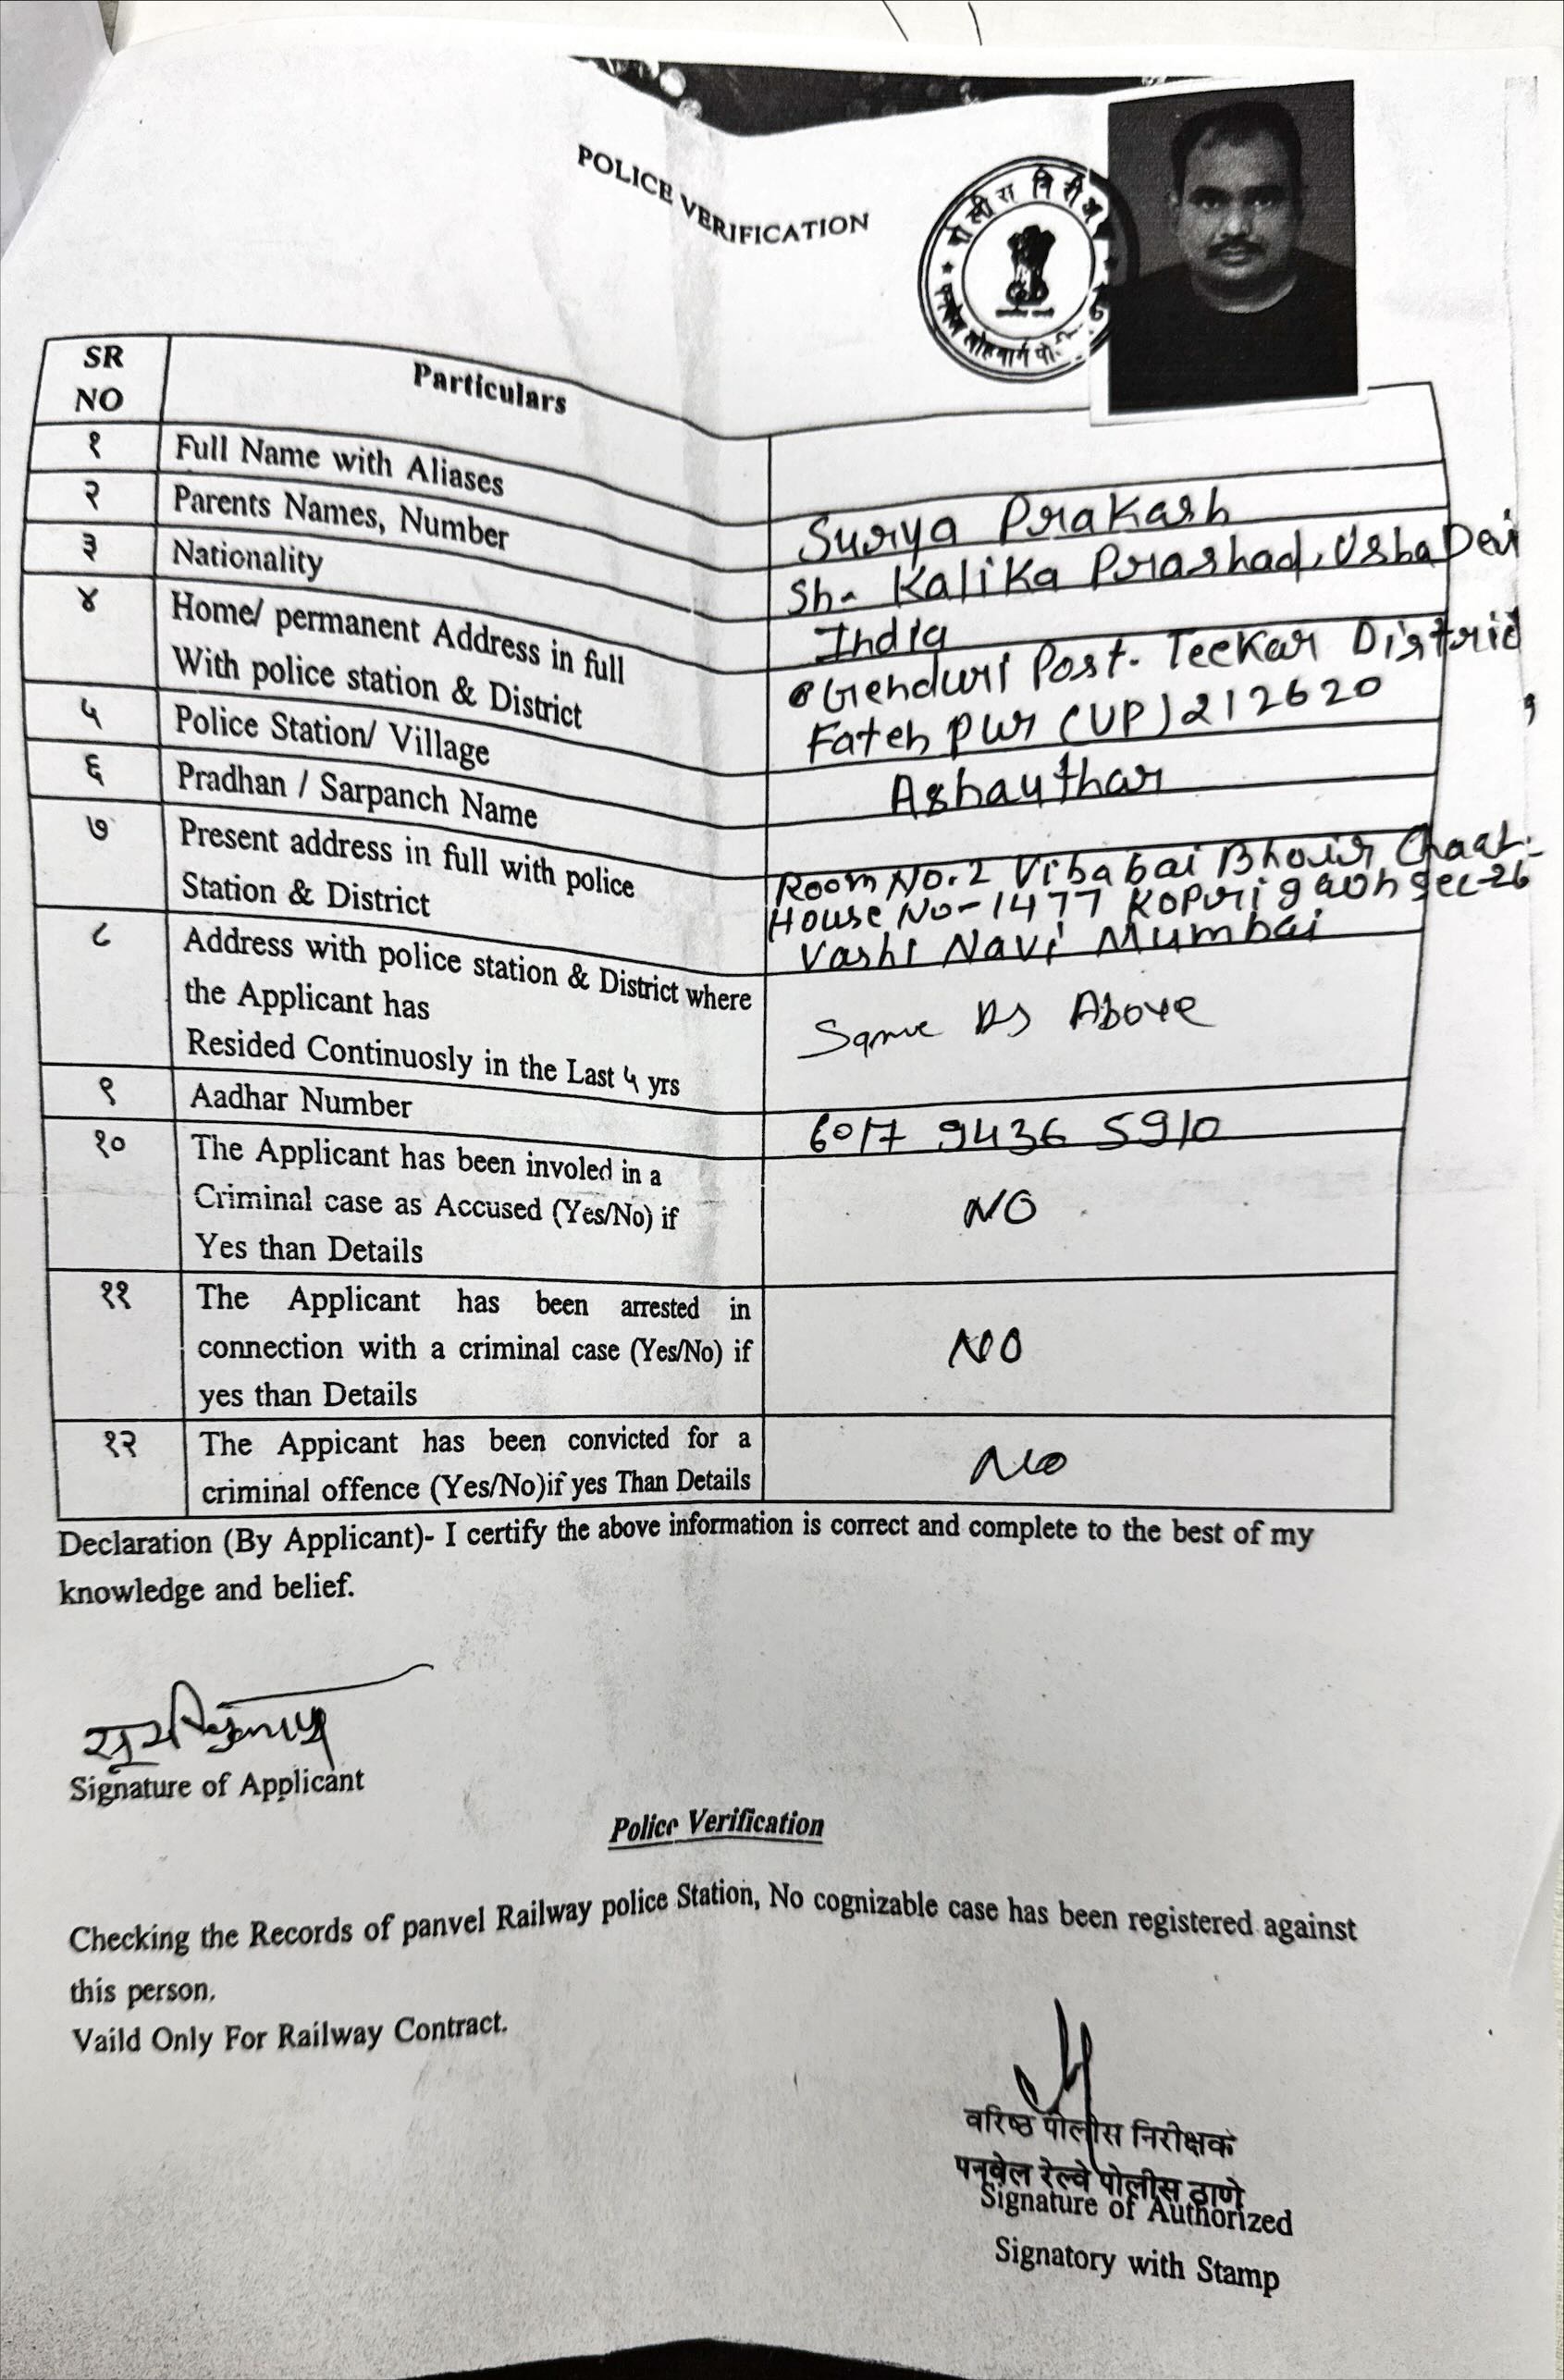 POLICE VERIFICATION
पोलीस निरीक्ष
पनवेल लोहमार्ग पो.
SR NO
Particulars
१ Full Name with Aliases
Surya Prakash
२ Parents Names, Number
Sh- Kalika Prashad, Usha Devi
३ Nationality
India
४ Home/ permanent Address in full
With police station & District
Genduri Post- Teekar District
Fatehpur (UP) 212620
५ Police Station/ Village
Ashauthar
६ Pradhan / Sarpanch Name
७ Present address in full with police
Station & District
Room No.2 Vibabai Bhoir Chaal-
House No-1477 Kopri gaon sec-26
Vashi Navi Mumbai
८ Address with police station & District where
the Applicant has
Resided Continuosly in the Last ५ yrs
Same As Above
९ Aadhar Number
6017 9436 5910
१० The Applicant has been involed in a
Criminal case as Accused (Yes/No) if
Yes than Details
NO
११ The Applicant has been arrested in
connection with a criminal case (Yes/No) if
yes than Details
NO
१२ The Appicant has been convicted for a
criminal offence (Yes/No)if yes Than Details
No
Declaration (By Applicant)- I certify the above information is correct and complete to the best of my
knowledge and belief.
Signature of Applicant
Police Verification
Checking the Records of panvel Railway police Station, No cognizable case has been registered against
this person.
Vaild Only For Railway Contract.
वरिष्ठ पोलीस निरीक्षक
पनवेल रेल्वे पोलीस ठाणे
Signature of Authorized
Signatory with Stamp